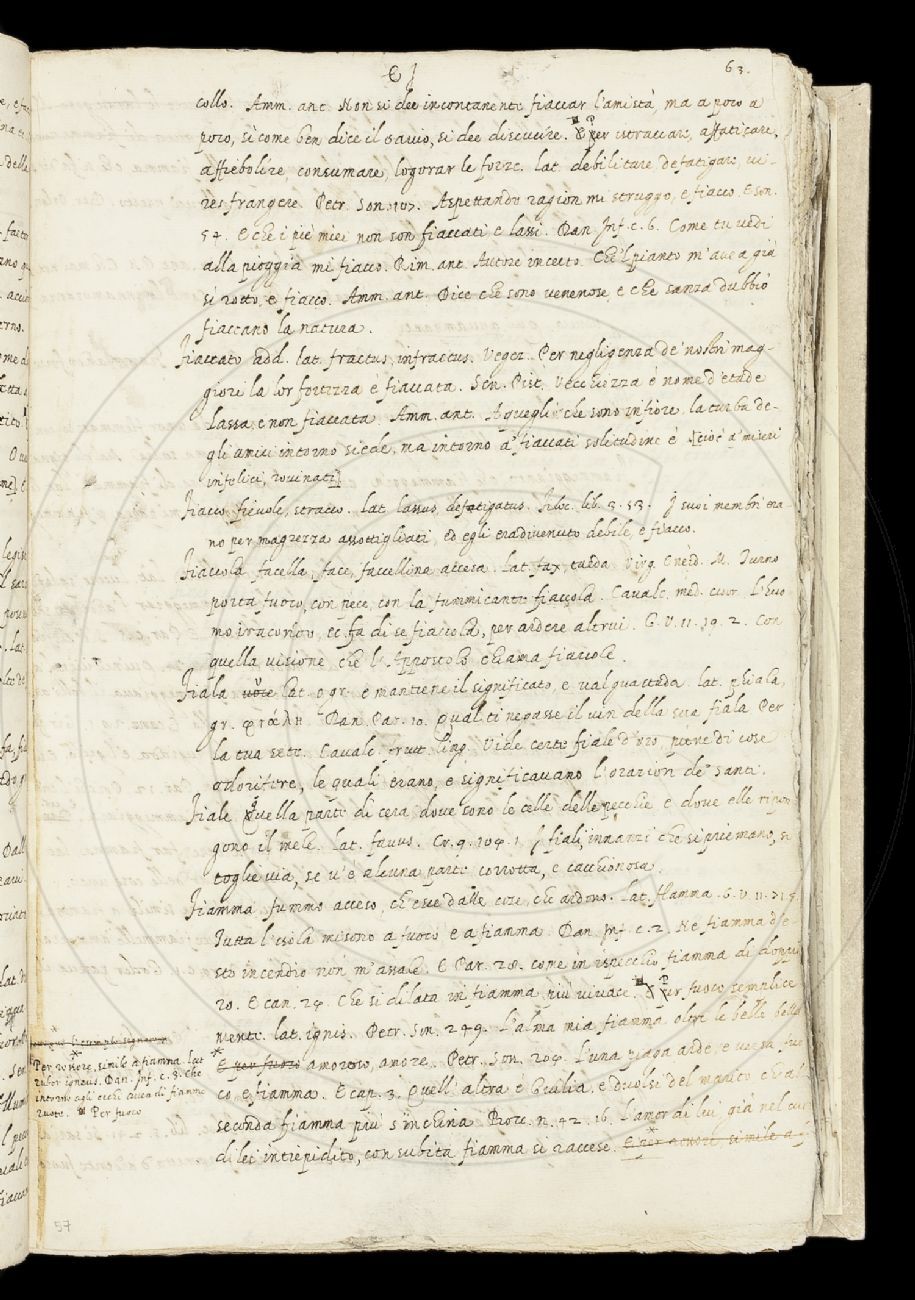 63.
collo. Amm. ant. Non si dee incontanente fiaccar l'amistà ma a poco a
poco, sì come ben dice il savio, si dee discucire. Per istraccare, affaticare,
affiebolire, consumare, logorar le forze. lat. debilitare defatigare, vi-
res frangere. Petr. Son. 107. Aspettando ragion mi struggo, e fiacco. E son.
54. E che i piè miei non son fiaccati e lassi. Dan Inf. c. 6. Come tu vedi
alla pioggia mi fiacco. Rim. ant. Autore incerto. Che'l pianto m'ave a già
sì rotto, e fiacco. Amm. ant. Dice che sono venenose, e che sanza dubbio
fiaccano la natura.
Fiaccato add. lat. fractus, infractus. Vegez. Per negligenza de' nostri mag-
giori la lor fortezza è fiaccata. Sen. Pist. Vecchiezza è nome d'etade
lassa, e non fiaccata. Amm. ant. A quegli che sono in fiore la turba de-
gli amici intorno siede, ma intorno a' fiaccati solitudine è [cioè a' miseri
infelici, rovinati]
Fiacco, fievole, stracco. Lat. lassus, defatigatus. Filoc. lib. 3. 53. I suoi membri era-
no per magrezza assottigliati, ed egli era divenuto debile, e fiacco.
Fiaccola facella, face, faccellina accesa. Lat. fax, taeda. Virg. Eneid. M. Turno
porta fuoco, con pece, con la fummicante fiaccola. Cavalc. med. cuor. L'huo
mo iracondo, ec. fa di se fiaccola, per ardere altrui. G. V. 11. 19. 2. Con
quella visione che l'Appostolo chiama fiaccole.
Fiala voce lat. e gr. e mantiene il significato, e val guastada. lat. phiala,
gr. Dan. Par. 10. Qual ti negasse il vin della sua fiala Per
la tua sete. Cavalc. frutt. ling. Vide certe fiale d'oro, piene di cose
odorifere, le quali erano, e significavano l'orazion de' santi.
Fiale Quella parte di cera dove sono le celle delle pecchie e dove elle ripon-
gono il mele. Lat. favus. Cr. 9. 104. 1. I fiali, innanzi che si priemano, si
toglie via, se v'è alcuna parte corrotta, e cacchionosa.
Fiamma fummo acceso, ch'esce dalle cose, che ardono. Lat. flamma. G. V. 11.
Tutta l'isola misono a fuoco e a fiamma. Dan Inf. c. 2. Ne fiamma d'e-
sto incendio non m'assale. E Par. 28. come in ispecchio fiamma di doppier
20. E can. 24. Che si dilata in fiamma più vivace. Per fuoco semplice
mente. lat. ignis. Petr. Son. 249. L'alma mia fiamma oltre le belle bella
E per fuoco amoroso, amore. Petr. Son. 204. L'una piaga arde, e versa fuo
co, e fiamma. E cap. 3. Quell'altra è Giulia, e duolsi del marito ch'al
seconda fiamma più s'inchina. Bocc. n. 42. 16. L'amor di lui già nel cuor
di lei intiepidito, con subita fiamma si raccese. E per rancore simile a
Per rossore, simile a fiamma. Lat.
rubor igneus. Dan. Inf. c. 3. Che
intorno agli occhi avea di fiamme
ruote. Per fuoco
57